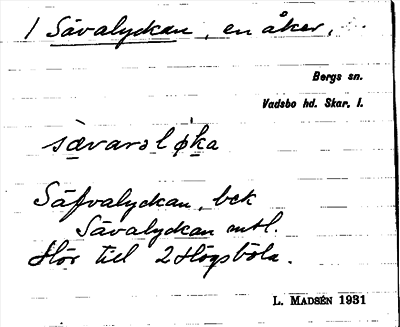 1 Sävalyckan, en åker,
Bergs sn.
Vadsbo hd. Skar. l.
sævarəløka
Säfvalyckan, bek
Sävalyckan mtl.
Hör till 2 Högsböla.
L. MADSÉN 1931